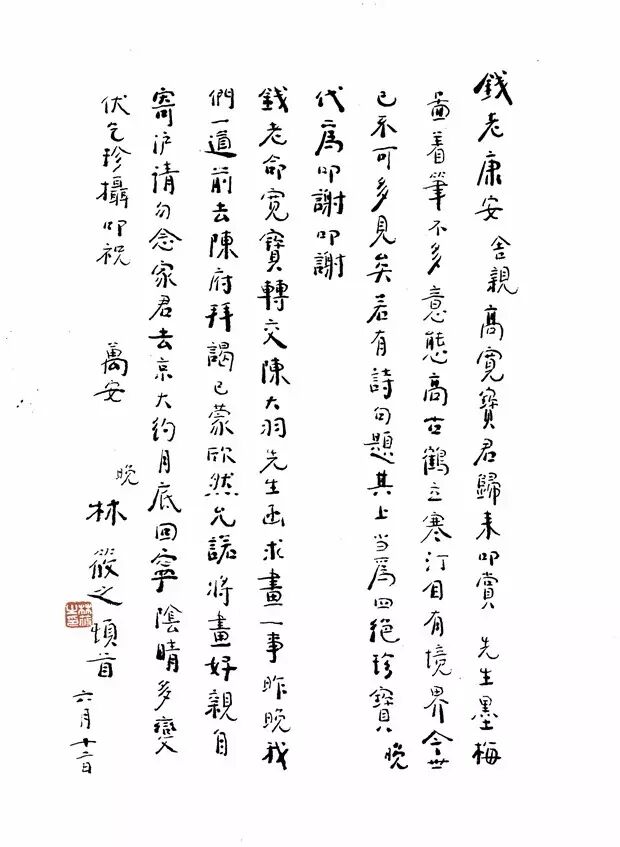 錢老康安 舍親高寬寶君歸来叩賞 先生墨梅
畫着筆不多意態高古鶴立寒汀自有境界今世
已不可多見矣若有詩句題其上当爲四絕珍寶 晚
代爲叩謝叩謝
錢老命寬寶轉交陳大羽先生函求畫一事昨晚我
們一道前去陳府拜謁已蒙欣然允諾將畫好親自
寄沪請勿念家君去京大約月底回寧陰晴多變
伏乞珍攝叩祝
萬安
晚 林筱之頓首 六月十二日